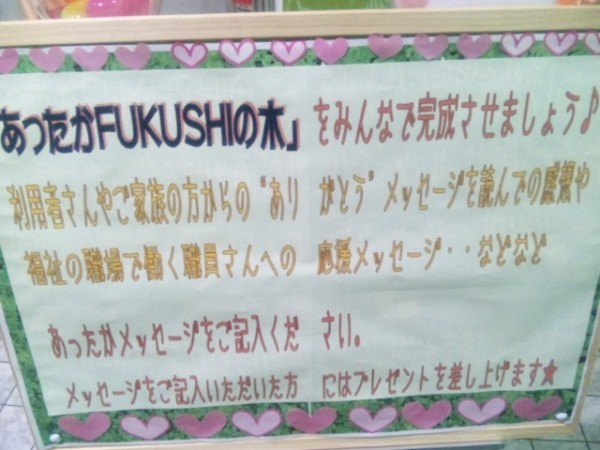 あったかFUKUSHIの木」をみんなで完成させましょう♪
利用者さんやご家族の方からの“ありがとう”メッセージを読んでの感想や
福祉の職場で働く職員さんへの応援メッセージ・・などなど
あったかメッセージをご記入ください。
メッセージをご記入いただいた方にはプレゼントを差し上げます★